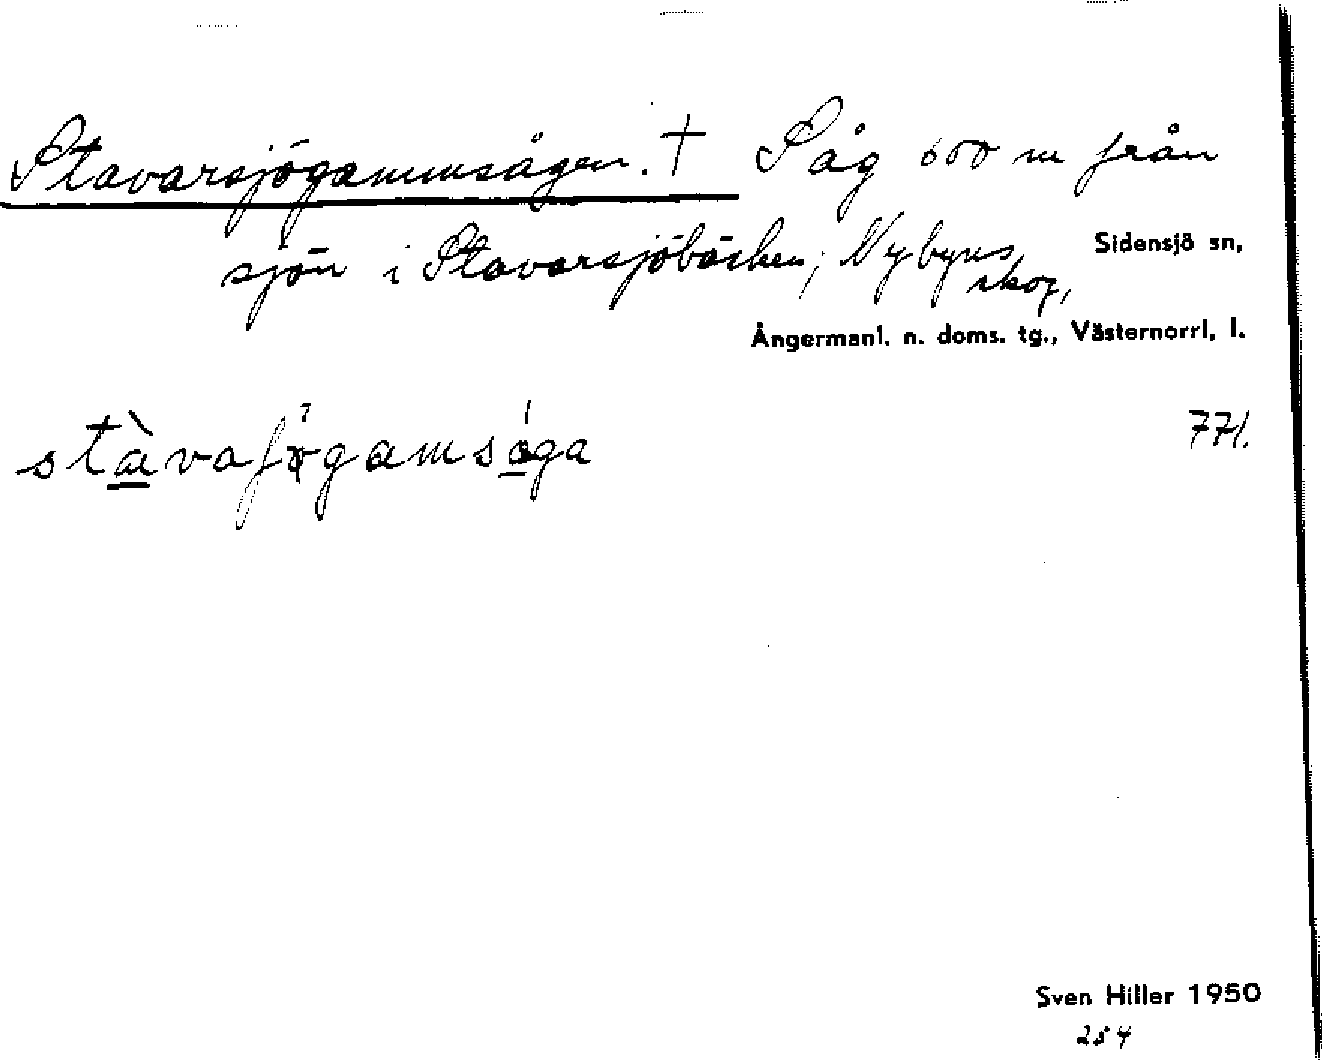 Stavarsjögammsågen. † Såg 600 m från
sjön i Stavarsjöbäcken; Nybyns
skog,
Sidensjö sn,
Ångermanl. n. doms. tg., Västernorrl. l.
771.
Sven Hiller 1950
254